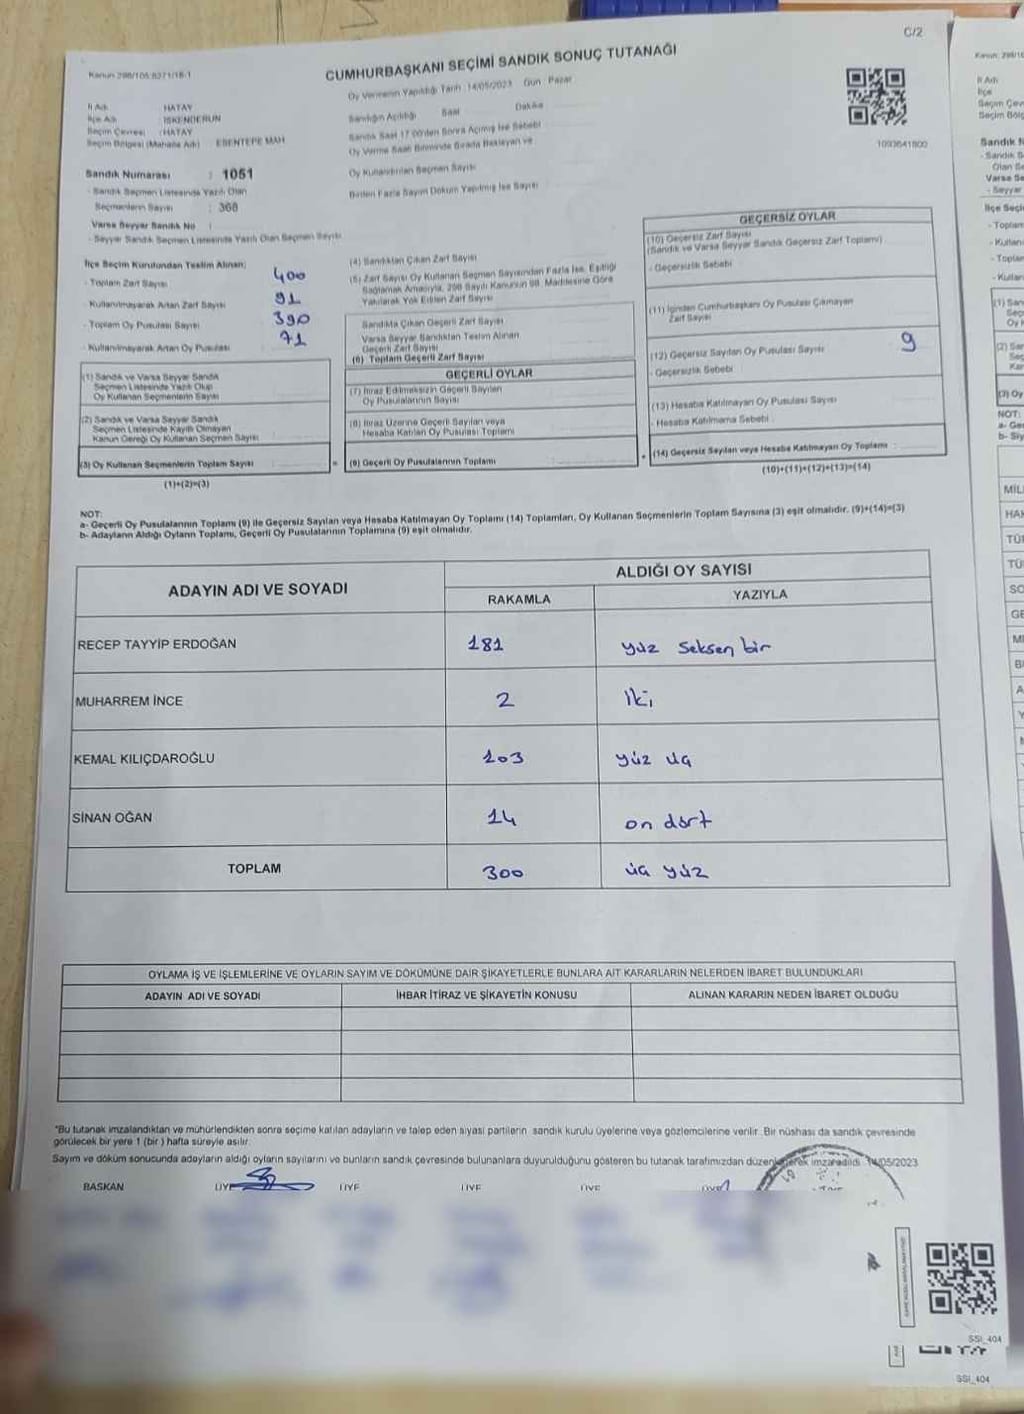 C/2
Kanun 298/105 6271/18-1
CUMHURBAŞKANI SEÇİMİ SANDIK SONUÇ TUTANAĞI
Oy Vermenin Yapıldığı Tarih : 14/05/2023 Gün : Pazar
İl Adı : HATAY
İlçe Adı : İSKENDERUN
Seçim Çevresi : HATAY
Seçim Bölgesi (Mahalle Adı) ESENTEPE MAH
Sandık Numarası : 1051
- Sandık Seçmen Listesinde Yazılı Olan
Seçmenlerin Sayısı : 368
Varsa Seyyar Sandık No
- Seyyar Sandık Seçmen Listesinde Yazılı Olan Seçmen Sayısı
Sandığın Açıldığı Saat Dakika
Sandık Saat 17:00'den Sonra Açılmış İse Sebebi
Oy Verme Saati Bitiminde Sırada Bekleyen ve
Oy Kullandırılan Seçmen Sayısı
Birden Fazla Sayım Döküm Yapılmış İse Sayısı
1093641800
İlçe Seçim Kurulundan Teslim Alınan;
- Toplam Zarf Sayısı 400
- Kullanılmayarak Artan Zarf Sayısı 91
- Toplam Oy Pusulası Sayısı 390
- Kullanılmayarak Artan Oy Pusulası 71
(1) Sandık ve Varsa Seyyar Sandık
Seçmen Listesinde Yazılı Olup
Oy Kullanan Seçmenlerin Sayısı
(2) Sandık ve Varsa Seyyar Sandık
Seçmen Listesinde Kayıtlı Olmayan
Kanun Gereği Oy Kullanan Seçmen Sayısı
(3) Oy Kullanan Seçmenlerin Toplam Sayısı
(1)+(2)=(3)
(4) Sandıktan Çıkan Zarf Sayısı
(5) Zarf Sayısı Oy Kullanan Seçmen Sayısından Fazla İse, Eşitliği
Sağlamak Amacıyla, 298 Sayılı Kanunun 98. Maddesine Göre
Yakılarak Yok Edilen Zarf Sayısı
Sandıkta Çıkan Geçerli Zarf Sayısı
Varsa Seyyar Sandıktan Teslim Alınan
Geçerli Zarf Sayısı
(6) Toplam Geçerli Zarf Sayısı
GEÇERLİ OYLAR
(7) İtiraz Edilmeksizin Geçerli Sayılan
Oy Pusulalarının Sayısı
(8) İtiraz Üzerine Geçerli Sayılan veya
Hesaba Katılan Oy Pusulası Toplamı
(9) Geçerli Oy Pusulalarının Toplamı
GEÇERSİZ OYLAR
(10) Geçersiz Zarf Sayısı
(Sandık ve Varsa Seyyar Sandık Geçersiz Zarf Toplamı)
- Geçersizlik Sebebi
(11) İçinden Cumhurbaşkanı Oy Pusulası Çıkmayan
Zarf Sayısı
(12) Geçersiz Sayılan Oy Pusulası Sayısı 9
- Geçersizlik Sebebi
(13) Hesaba Katılmayan Oy Pusulası Sayısı
- Hesaba Katılmama Sebebi
(14) Geçersiz Sayılan veya Hesaba Katılmayan Oy Toplamı
(10)+(11)+(12)+(13)=(14)
NOT:
a- Geçerli Oy Pusulalarının Toplamı (9) ile Geçersiz Sayılan veya Hesaba Katılmayan Oy Toplamı (14) Toplamları, Oy Kullanan Seçmenlerin Toplam Sayısına (3) eşit olmalıdır. (9)+(14)=(3)
b- Adayların Aldığı Oyların Toplamı, Geçerli Oy Pusulalarının Toplamına (9) eşit olmalıdır.
ADAYIN ADI VE SOYADI ALDIĞI OY SAYISI
RAKAMLA YAZIYLA
RECEP TAYYİP ERDOĞAN 181 yüz seksen bir
MUHARREM İNCE 2 iki
KEMAL KILIÇDAROĞLU 103 yüz üç
SİNAN OĞAN 14 on dört
TOPLAM 300 üç yüz
OYLAMA İŞ VE İŞLEMLERİNE VE OYLARIN SAYIM VE DÖKÜMÜNE DAİR ŞİKAYETLERLE BUNLARA AİT KARARLARIN NELERDEN İBARET BULUNDUKLARI
ADAYIN ADI VE SOYADI İHBAR İTİRAZ VE ŞİKAYETİN KONUSU ALINAN KARARIN NEDEN İBARET OLDUĞU
*Bu tutanak imzalandıktan ve mühürlendikten sonra seçime katılan adayların ve talep eden siyasi partilerin sandık kurulu üyelerine veya gözlemcilerine verilir. Bir nüshası da sandık çevresinde
görülecek bir yere 1 (bir) hafta süreyle asılır.
Sayım ve döküm sonucunda adayların aldığı oyların sayılarını ve bunların sandık çevresinde bulunanlara duyurulduğunu gösteren bu tutanak tarafımızdan düzenlenerek imzaradildi. 14/05/2023
BAŞKAN ÜYE ÜYE ÜYE ÜYE ÜYE
SSI_404
SSI_404